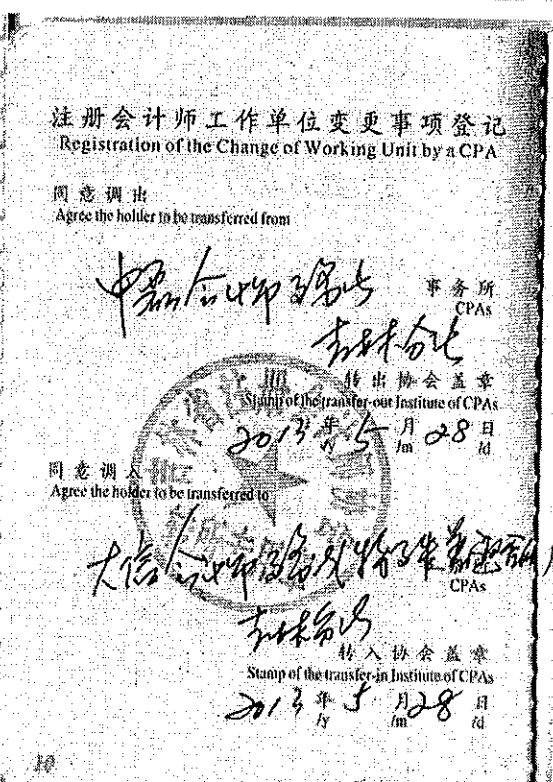 注册会计师工作单位变更事项登记
Registration of the Change of Working Unit by a CPA
同意调出
Agree the holder to be transferred from
中磊会计师事务所
事务所
CPAs
吉林分所
转出协会盖章
Stamp of the transfer-out Institute of CPAs
2013 年 5 月 28 日
/y /m /d
同意调入
Agree the holder to be transferred to
大信会计师事务所(特殊普通合伙)
CPAs
吉林分所
转入协会盖章
Stamp of the transfer-in Institute of CPAs
2013 年 5 月 28 日
/y /m /d
10